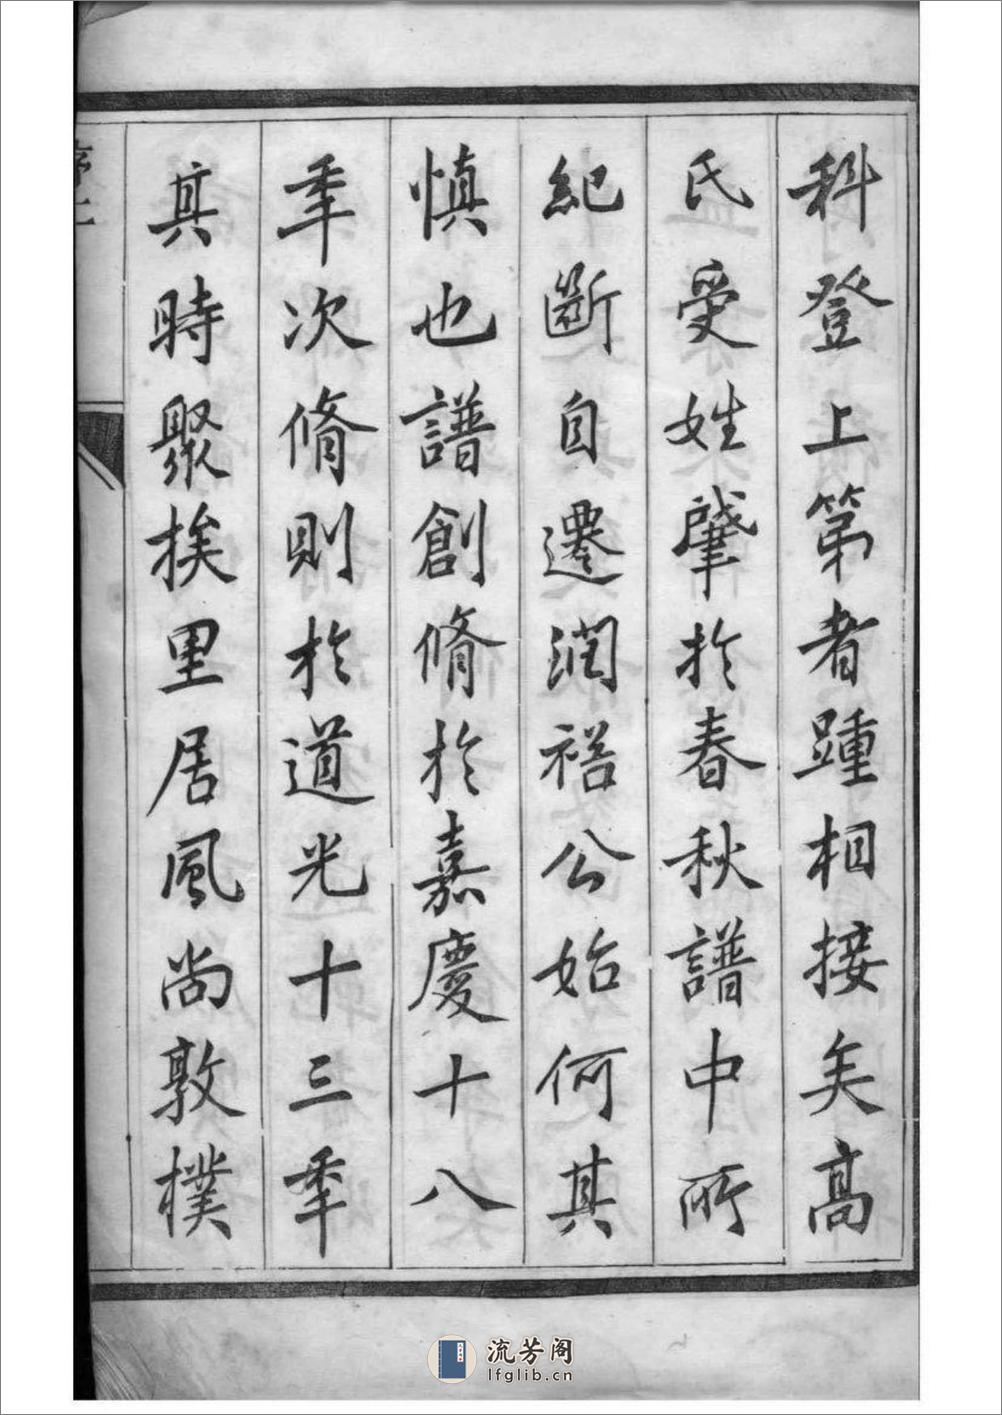 科登上第者踵相接矣高
氏受姓肇於春秋譜中所
紀斷自遷潤裕公始何其
慎也譜創脩於嘉慶十八
年次脩則於道光十三年
其時聚族里居風尚敦樸
流芳阁
lfglib.cn